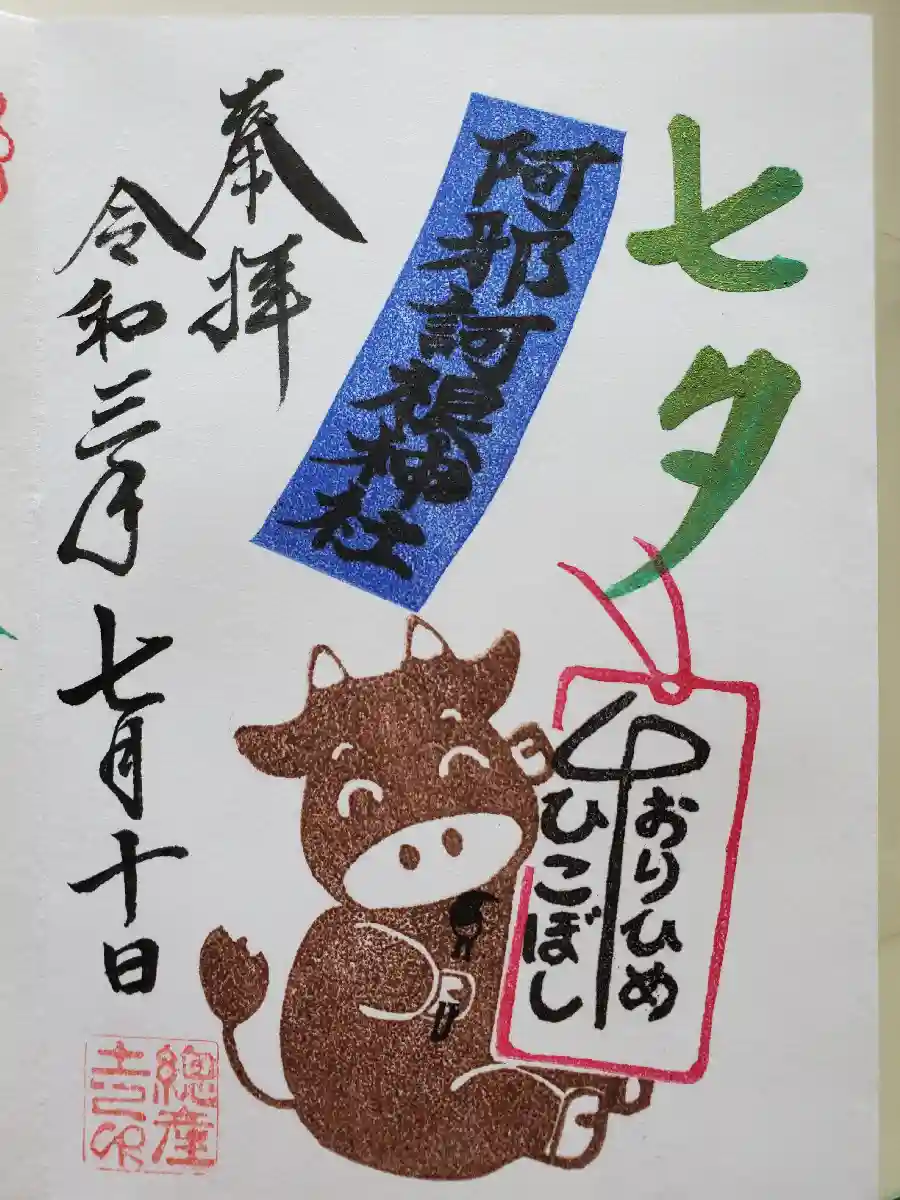 七夕
阿邪訶根神社
奉拝
令和三年 七月十日
おりひめ
ひこぼし
總産